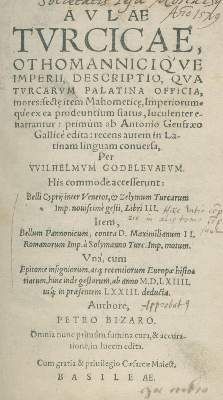 Societatis
AVLAE
TVRCICAE,
OTHOMANNICIQ'VE
IMPERII, DESCRIPTIO, QVA
TVRCARVM PALATINA OFFICIA,
mores: sectę item Mahometicę, Imperiorum-
que ex ea prodeuntium status, luculenter e-
narrantur: primùm ab Antonio Geufræo
Gallicè edita: recens autem in La-
tinam linguam conuersa,
Per
VVILHELMVM GODELEVAEVM.
His commodè accesserunt:
Belli Cyprij inter Venetos, & Zelymum Turcarum
Imp. nouissimè gesti, Libri III.
Item,
Bellum Pannonicum, contra D. Maximilianum II.
Romanorum Imp. à Solymanno Turc. Imp. motum.
Vnà, cum
Epitome insigniorum, atq; recentiorum Europæ histo-
riarum, hinc inde gestarum, ab anno M. D. LXIIII.
usq; in præsentem LXXIII. deducta,
Authore,
PETRO BIZARO.
Omnia nunc primùm summa cura, & accura-
tione, in lucem edita.
Cum gratia & priuilegio Cæsareæ Maiest.
BASILEAE.